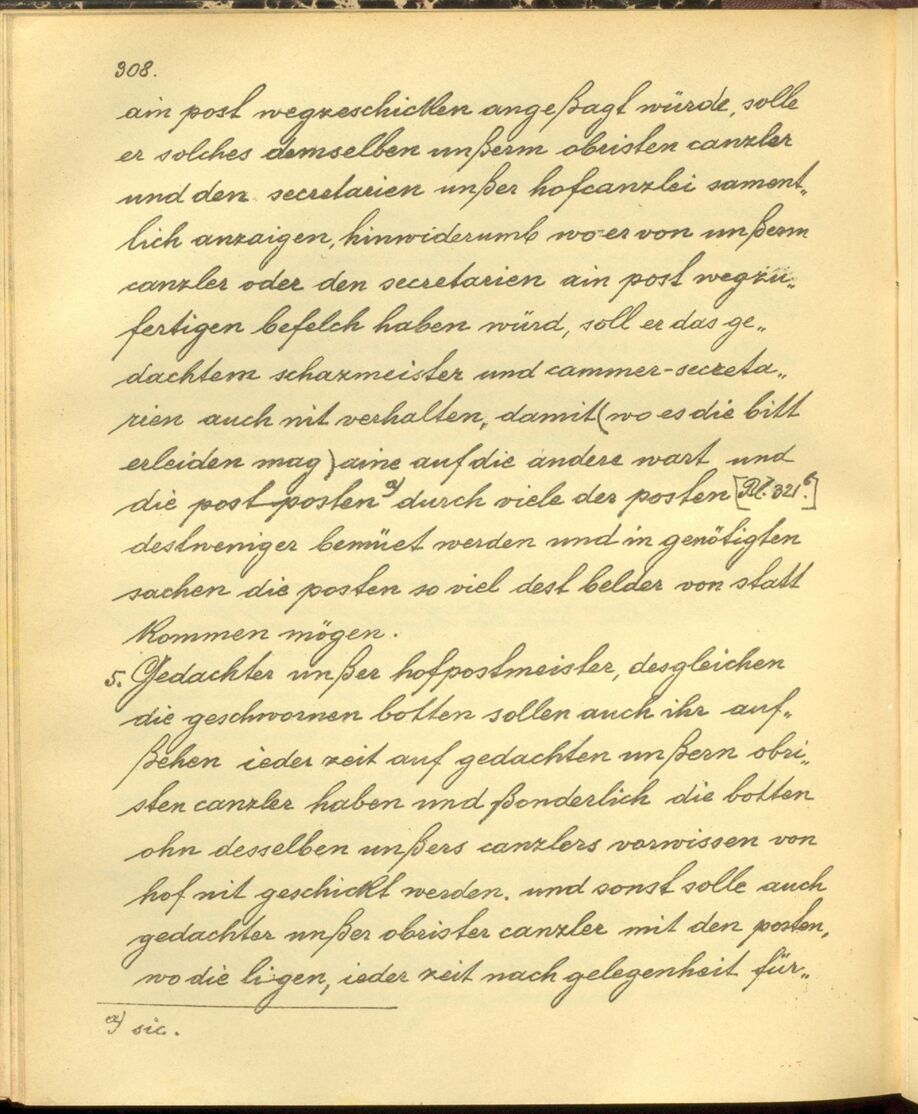 308.
ain post wegzeschicken angeßagt würde, solle
er solches demselben unßerm obristen canzler
und den secretarien unßer hofcanzlei sament„
lich anzaigen, hinwiderumb wo er von unßerm
canzler oder den secretarien ain post wegzu„
fertigen befelch haben würd, soll er das ge„
dachtem schazmeister und cammer-secreta„
rien auch nit verhalten, damit (wo es die bitt
erleiden mag) aine auf die andere wart und
die post posten a) durch viele der posten [Bl. 321b.]
destweniger bemüet werden und in genötigten
sachen die posten so viel dest belder von statt
kommen mögen.
5. Gedachter unßer hofpostmeister, desgleichen
die geschwornen botten sollen auch ihr auf„
ßehen ieder zeit auf gedachten unßern obri„
sten canzler haben und ßonderlich die botten
ohn desselben unßers canzlers vorwissen von
hof nit geschickt werden. und sonst solle auch
gedachter unßer obrister canzler mit den posten,
wo die ligen, ieder zeit nach gelegenheit für„
a) sic.